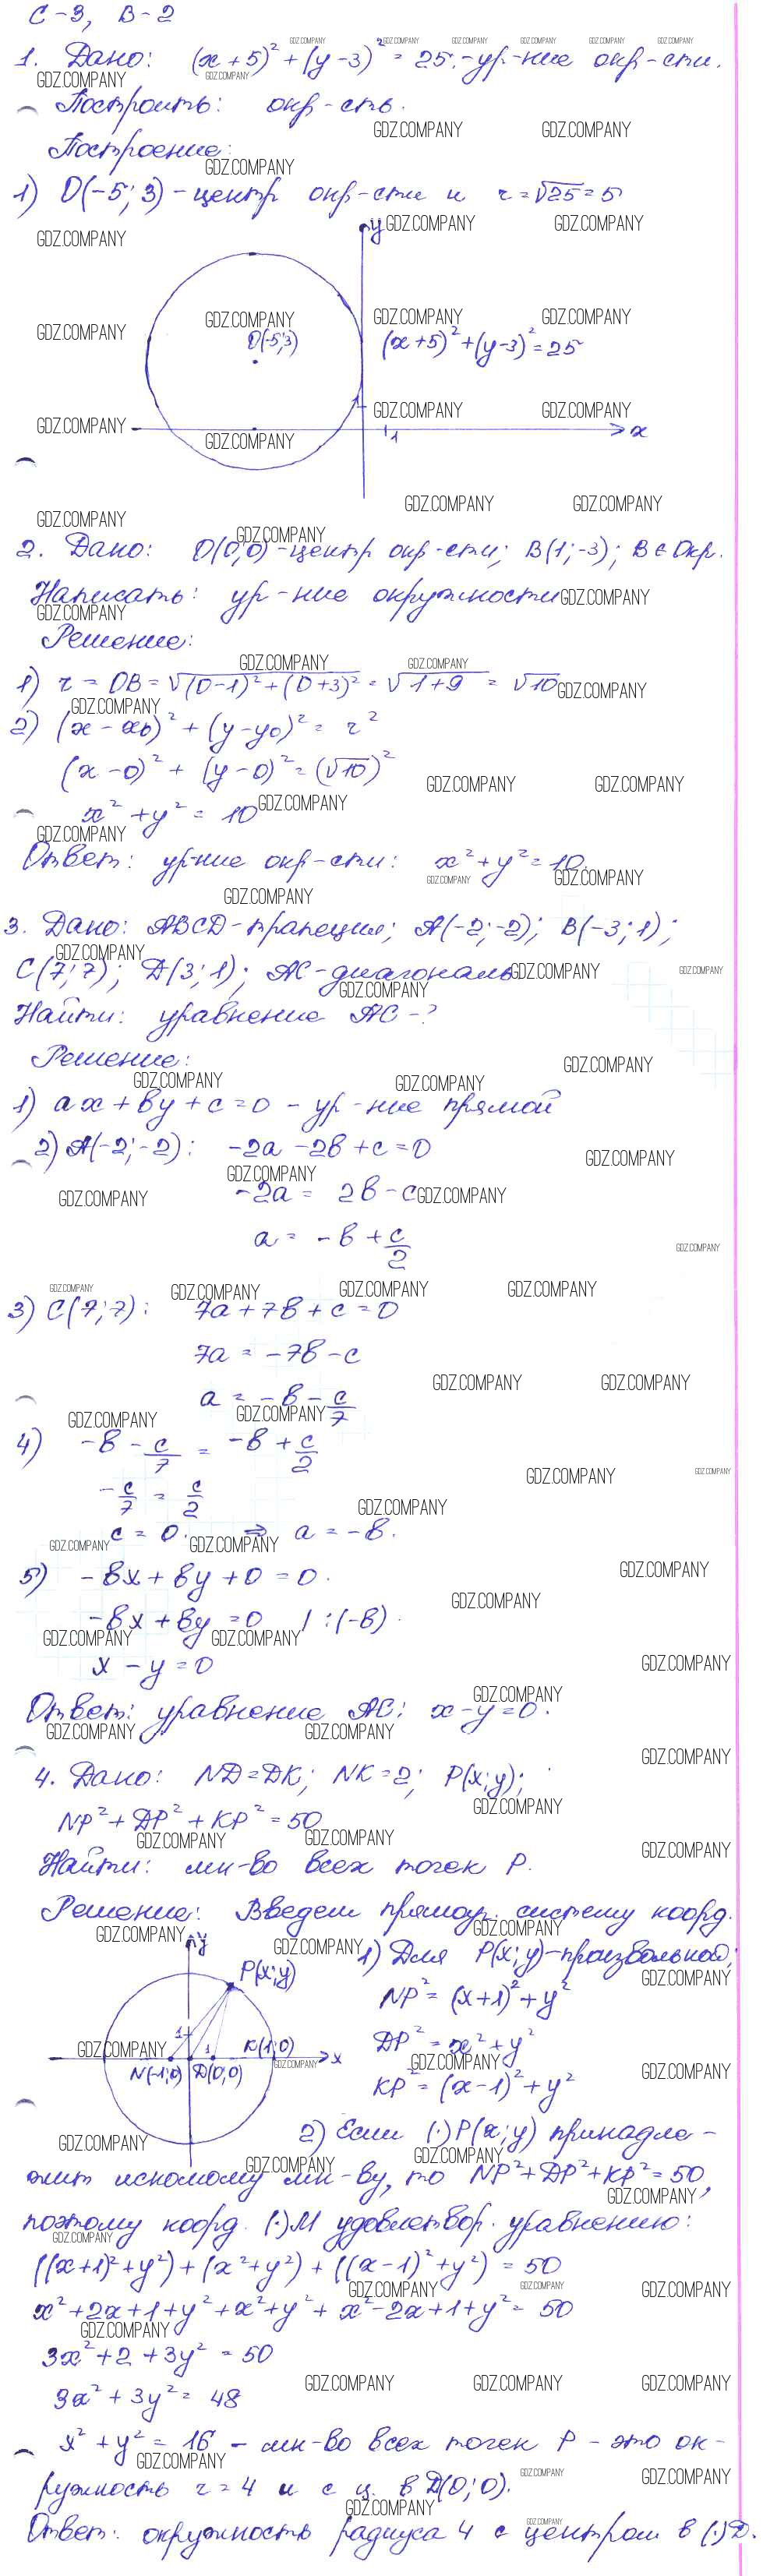 С-3, В-2
1. Дано: (x+5)² + (y-3)² = 25 - ур-ние окр-сти.
Построить: окр-сть.
Построение:
1) O(-5; 3) - центр окр-сти и r = √25 = 5
y
O(-5;3)
(x+5)² + (y-3)² = 25
1
1
x
2. Дано: O(0;0) - центр окр-сти; B(1;-3); B ∈ Окр.
Написать: ур-ние окружности
Решение:
1) r = OB = √(0-1)² + (0+3)² = √1+9 = √10
2) (x - x₀)² + (y-y₀)² = r²
(x-0)² + (y-0)² = (√10)²
x² + y² = 10
Ответ: ур-ние окр-сти: x² + y² = 10.
3. Дано: ABCD-трапеция; A(-2;-2); B(-3;1);
C(7;7); D(3;1); AC-диагональ
Найти: уравнение AC-?
Решение:
1) ax + by + c = 0 - ур-ние прямой
2) A(-2;-2): -2a - 2b + c = 0
-2a = 2b - c
a = -b + c/2
3) C(7;7): 7a + 7b + c = 0
7a = -7b - c
a = -b - c/7
4) -b - c/7 = -b + c/2
-c/7 = c/2
c = 0. ⇒ a = -b.
5) -bx + by + 0 = 0.
-bx + by = 0 | :(-b)
x - y = 0
Ответ: уравнение AC: x-y=0.
4. Дано: ND=DK; NK=2; P(x;y);
NP² + DP² + KP² = 50
Найти: мн-во всех точек P.
Решение: Введем прямоуг. систему коорд.
y
P(x;y)
1) Для P(x;y)-произвольной;
NP² = (x+1)² + y²
1
1
K(1;0)
x
N(-1;0) D(0;0)
DP² = x² + y²
KP² = (x-1)² + y²
2) Если (·)P(x;y) принадле-
жит искомому мн-ву, то NP² + DP² + KP² = 50,
поэтому коорд. (·)M удовлетвор. уравнению:
((x+1)² + y²) + (x² + y²) + ((x-1)² + y²) = 50
x² + 2x + 1 + y² + x² + y² + x² - 2x + 1 + y² = 50
3x² + 2 + 3y² = 50
3x² + 3y² = 48
x² + y² = 16 - мн-во всех точек P - это ок-
ружность r = 4 и с ц. в D(0;0).
Ответ: окружность радиуса 4 с центром в (·)D.
GDZ.COMPANY